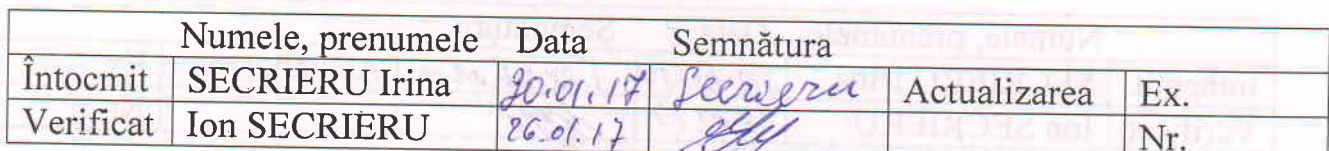 Numele, prenumele Data Semnătura
Întocmit SECRIERU Irina 30.01.17 Secrieru Actualizarea Ex.
Verificat Ion SECRIERU 26.01.17 Nr.